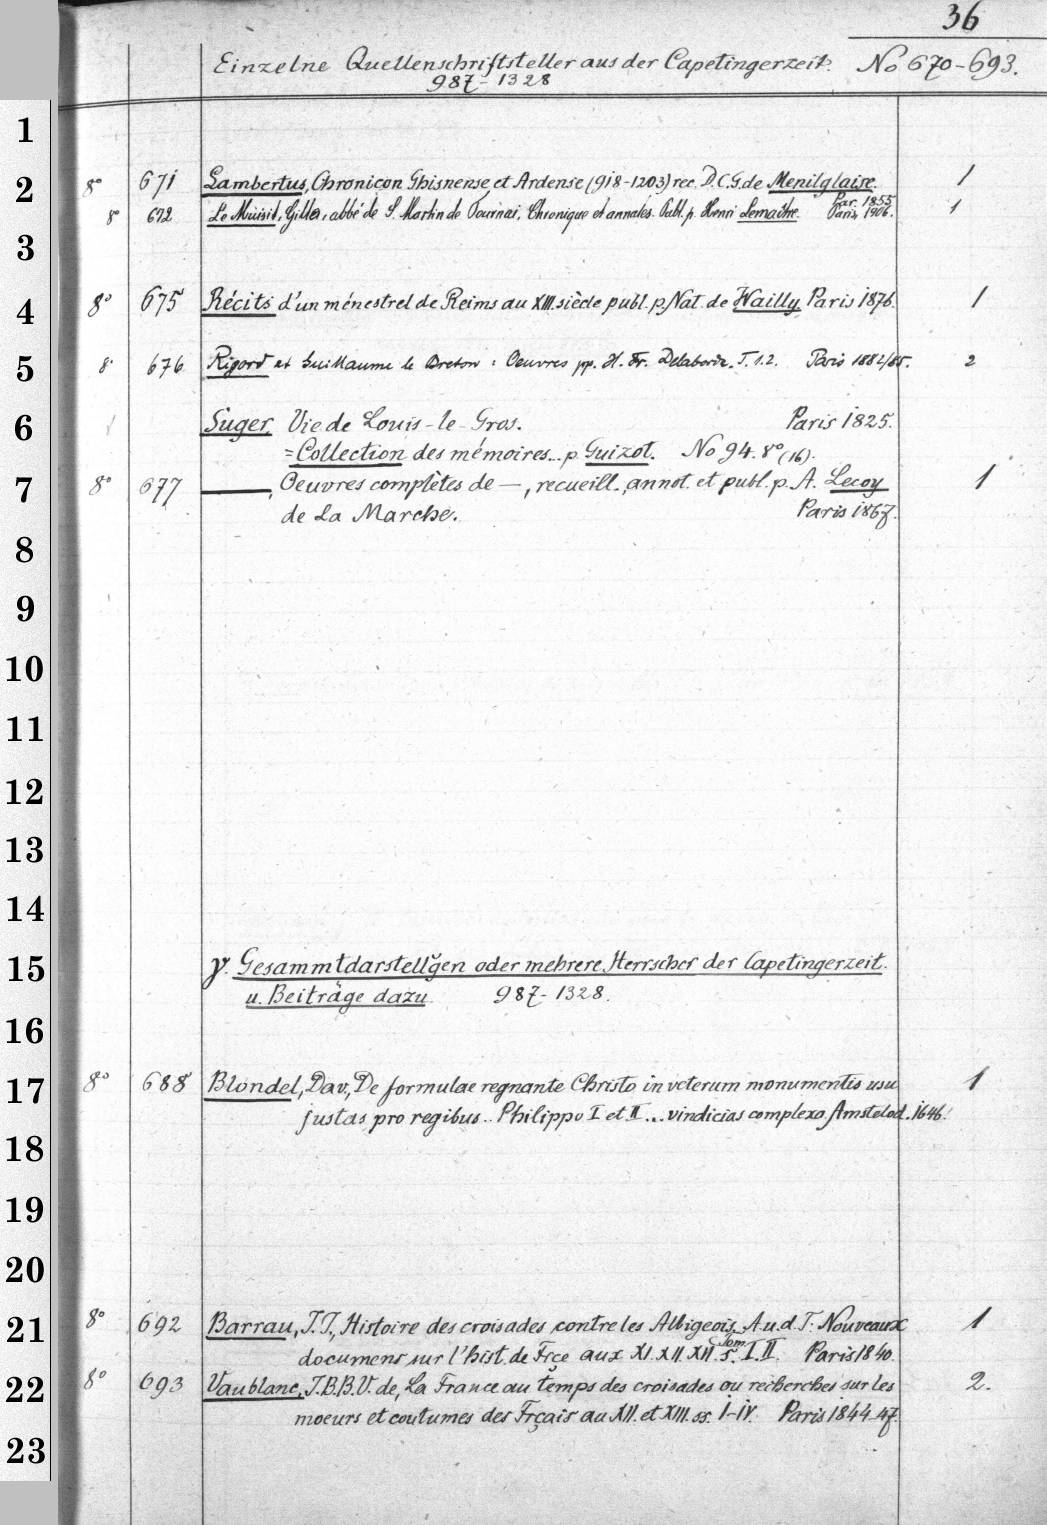 36
Einzelne Quellenschriftsteller aus der Capetingerzeit. No 670-693.
987-1328
1
2 8° 671 Lambertus, Chronicon Ghisnense et Ardense (918-1203) rec. D.C.G. de Menilglaise. 1
Par. 1855
8° 672 Le Muisit, Gilles, abbé de S. Martin de Tournai, Chronique et annales. Publ. p. Henri Lemaître. Paris, 1906. 1
3
4 8° 675 Récits d'un ménestrel de Reims au XIII. siècle publ. p. Nat. de Wailly Paris 1876. 1
5 8° 676 Rigord et Guillaume le Breton: Oeuvres pp. H. Fr. Delaborde. T. 1.2. Paris 1882/85. 2
6 Suger, Vie de Louis-le-Gros. Paris 1825.
= Collection des mémoires... p. Guizot. No 94. 8° (16).
7 8° 677 ———, Oeuvres complètes de —, recueill., annot. et publ. p. A. Lecoy 1
de La Marche. Paris 1867.
8
9
10
11
12
13
14
15 γ. Gesammtdarstellgen oder mehrere Herrscher der Capetingerzeit.
u. Beiträge dazu 987-1328.
16
17 8° 688 Blondel, Dav., De formulae regnante Christo in veterum monumentis usu 1
justas pro regibus.. Philippo I et II... vindicias complexa Amstelod. 1646.
18
19
20
21 8° 692 Barrau, J. J., Histoire des croisades contre les Albigeois. A. u. d. T: Nouveaux 1
documens sur l'hist. de Frçe aux XI. XII. XII. s. Tom. I. II. Paris 1840.
22 8° 693 Vaublanc, J.B.B.V. de, La France au temps des croisades ou recherches sur les 2.
moeurs et coutumes des Frçais au XII. et XIII. ss. I-IV. Paris 1844-47.
23